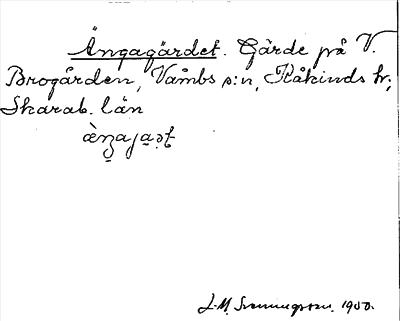 Ängagärdet. Gärde på V.
Brogården, Våmbs s:n, Kåkinds hr,
Skarab. län
J.M. Svenungsson. 1950.